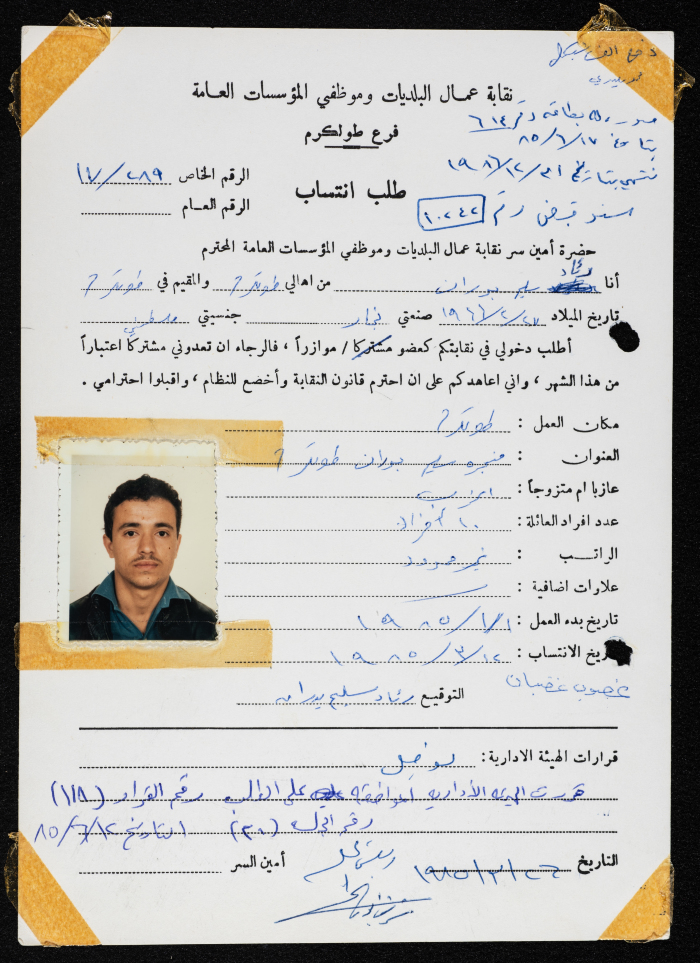 دفع
نقابة عمال البلديات وموظفي المؤسسات العامة
فرع طولكرم
صورة بطاقة رقم ٦١٤
بتاريخ ٨٥/٦/١٧
تنتهي بتاريخ ١٩٨٦/١٢/٣١
سند قبض رقم ١٠٢٤٢
الرقم الخاص ١٧/٢٨٩
الرقم العام
طلب انتساب
حضرة أمين سر نقابة عمال البلديات وموظفي المؤسسات العامة المحترم
أنا رئاد سليم بدران من اهالي طولكرم والمقيم في طولكرم
تاريخ الميلاد ١٩٦٦/٢/٢٧ صنعتي نجار جنسيتي فلسطيني
أطلب دخولي في نقابتكم كعضو مشتركا / موازراً ، فالرجاء ان تعدوني مشتركاً اعتباراً
من هذا الشهر ، واني اعاهدكم على ان احترم قانون النقابة وأخضع للنظام ، واقبلوا احترامي .
مكان العمل : طولكرم
العنوان : منجرة سليم بدران طولكرم
عازبا ام متزوجاً : اعزب
عدد افراد العائلة : ١٠ أفراد
الراتب : غير محدود
علاوات اضافية :
تاريخ بدء العمل : ١٩٨٥/١/١
تاريخ الانتساب : ١٩٨٥/٣/١٢
غصوب غضبان
التوقيع رئاد سليم بدران
قرارات الهيئة الادارية :
قررت الهيئة الأدارية الموافقة على الطلب رقم القرار (١/٨)
رقم الجلسة التاريخ ٨٥/٦/١٢
التاريخ ١٩٨٥/٣/٢٦ أمين السر